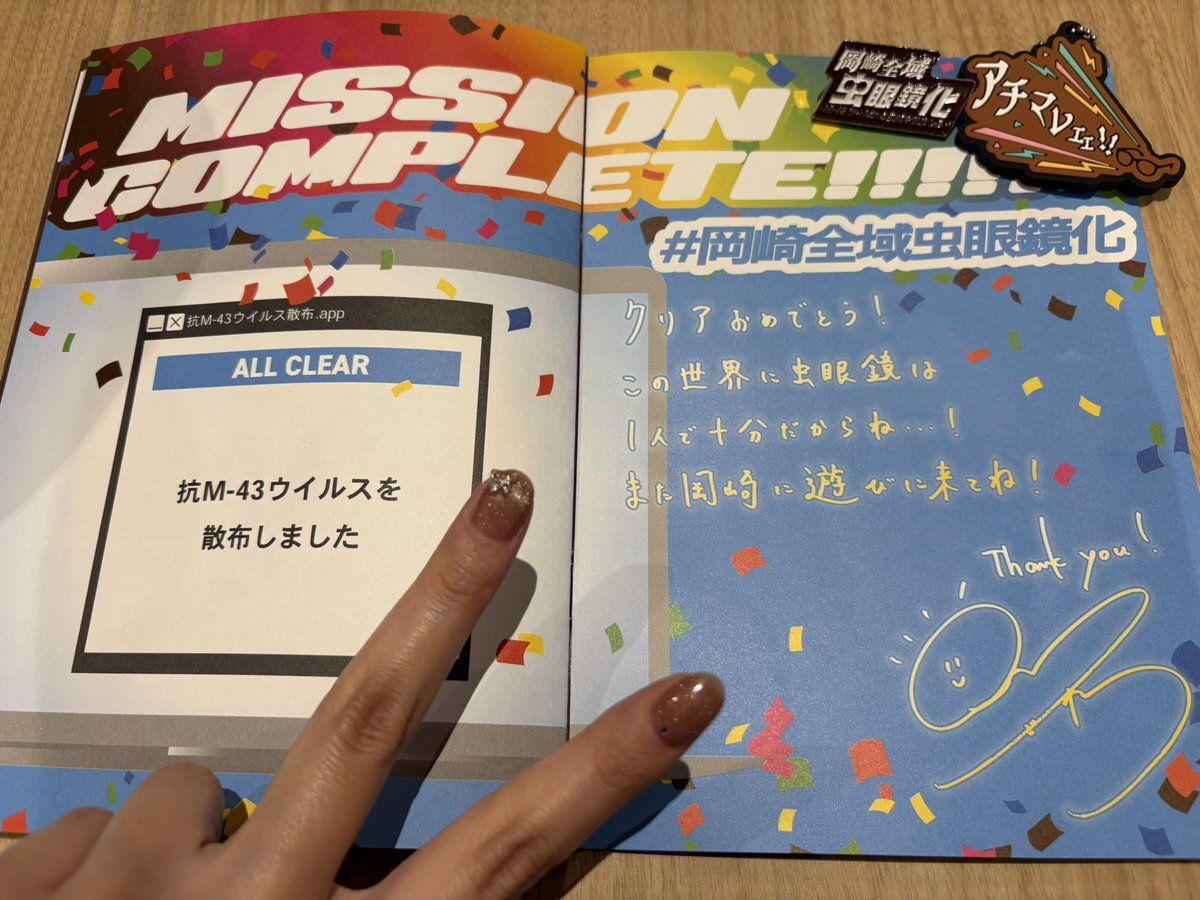 MISSION
COMPLETE!!!!!!
岡崎全域
虫眼鏡化
アチマレェェ!!
#岡崎全域虫眼鏡化
抗M-43ウイルス散布.app
ALL CLEAR
抗M-43ウイルスを
散布しました
クリアおめでとう!
この世界に虫眼鏡は
1人で十分だからね…!
また岡崎に遊びに来てね!
Thank you!